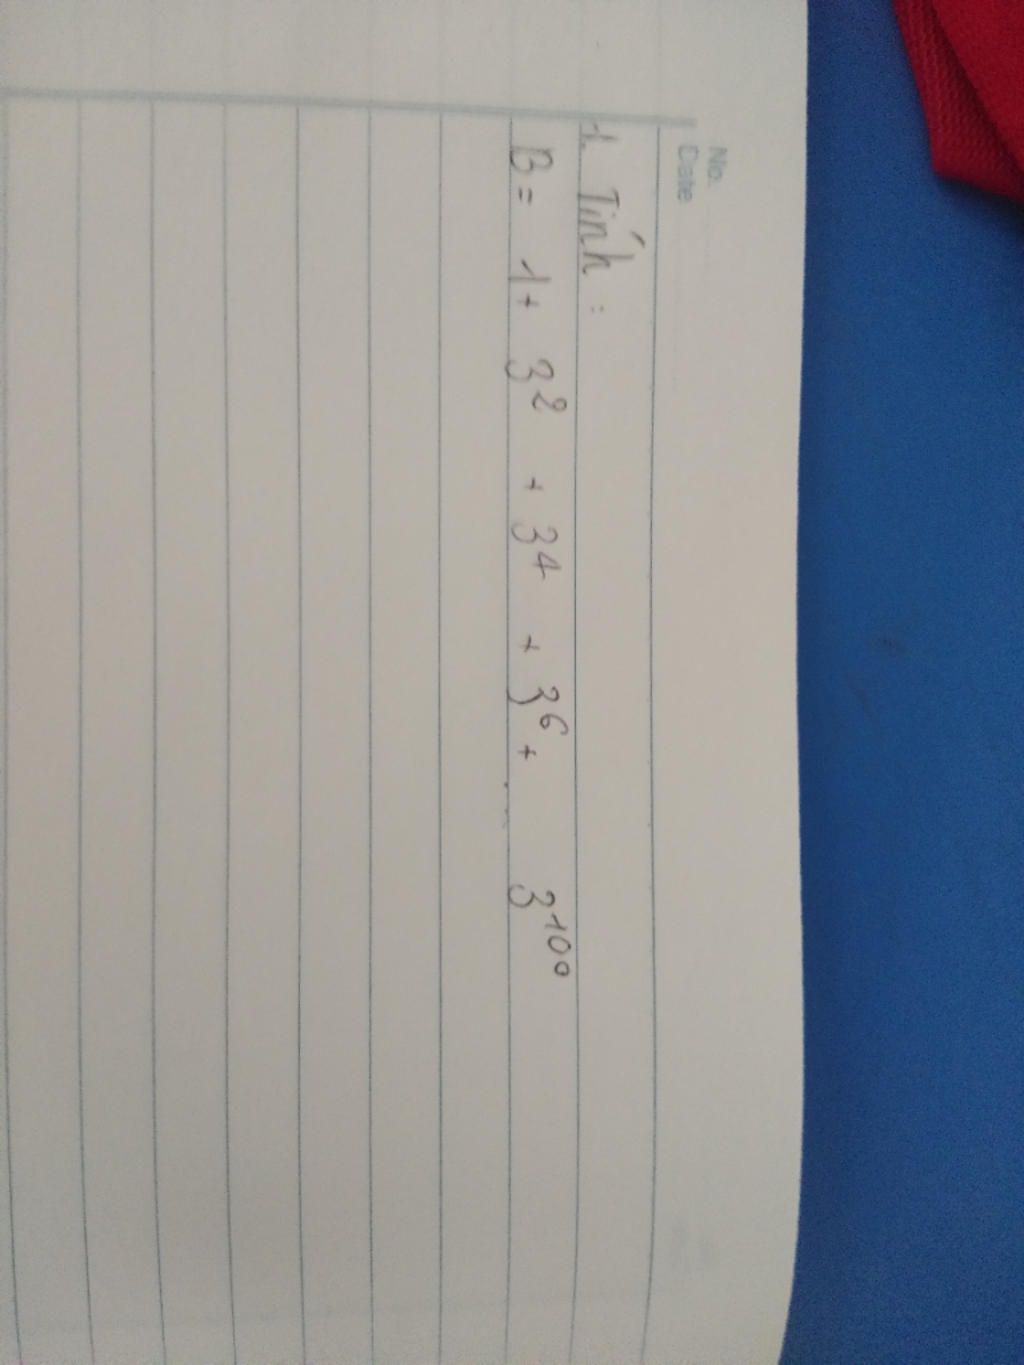 No.
Date
1. Tính :
B = 1 + 3² + 3⁴ + 3⁶ + ... 3¹⁰⁰